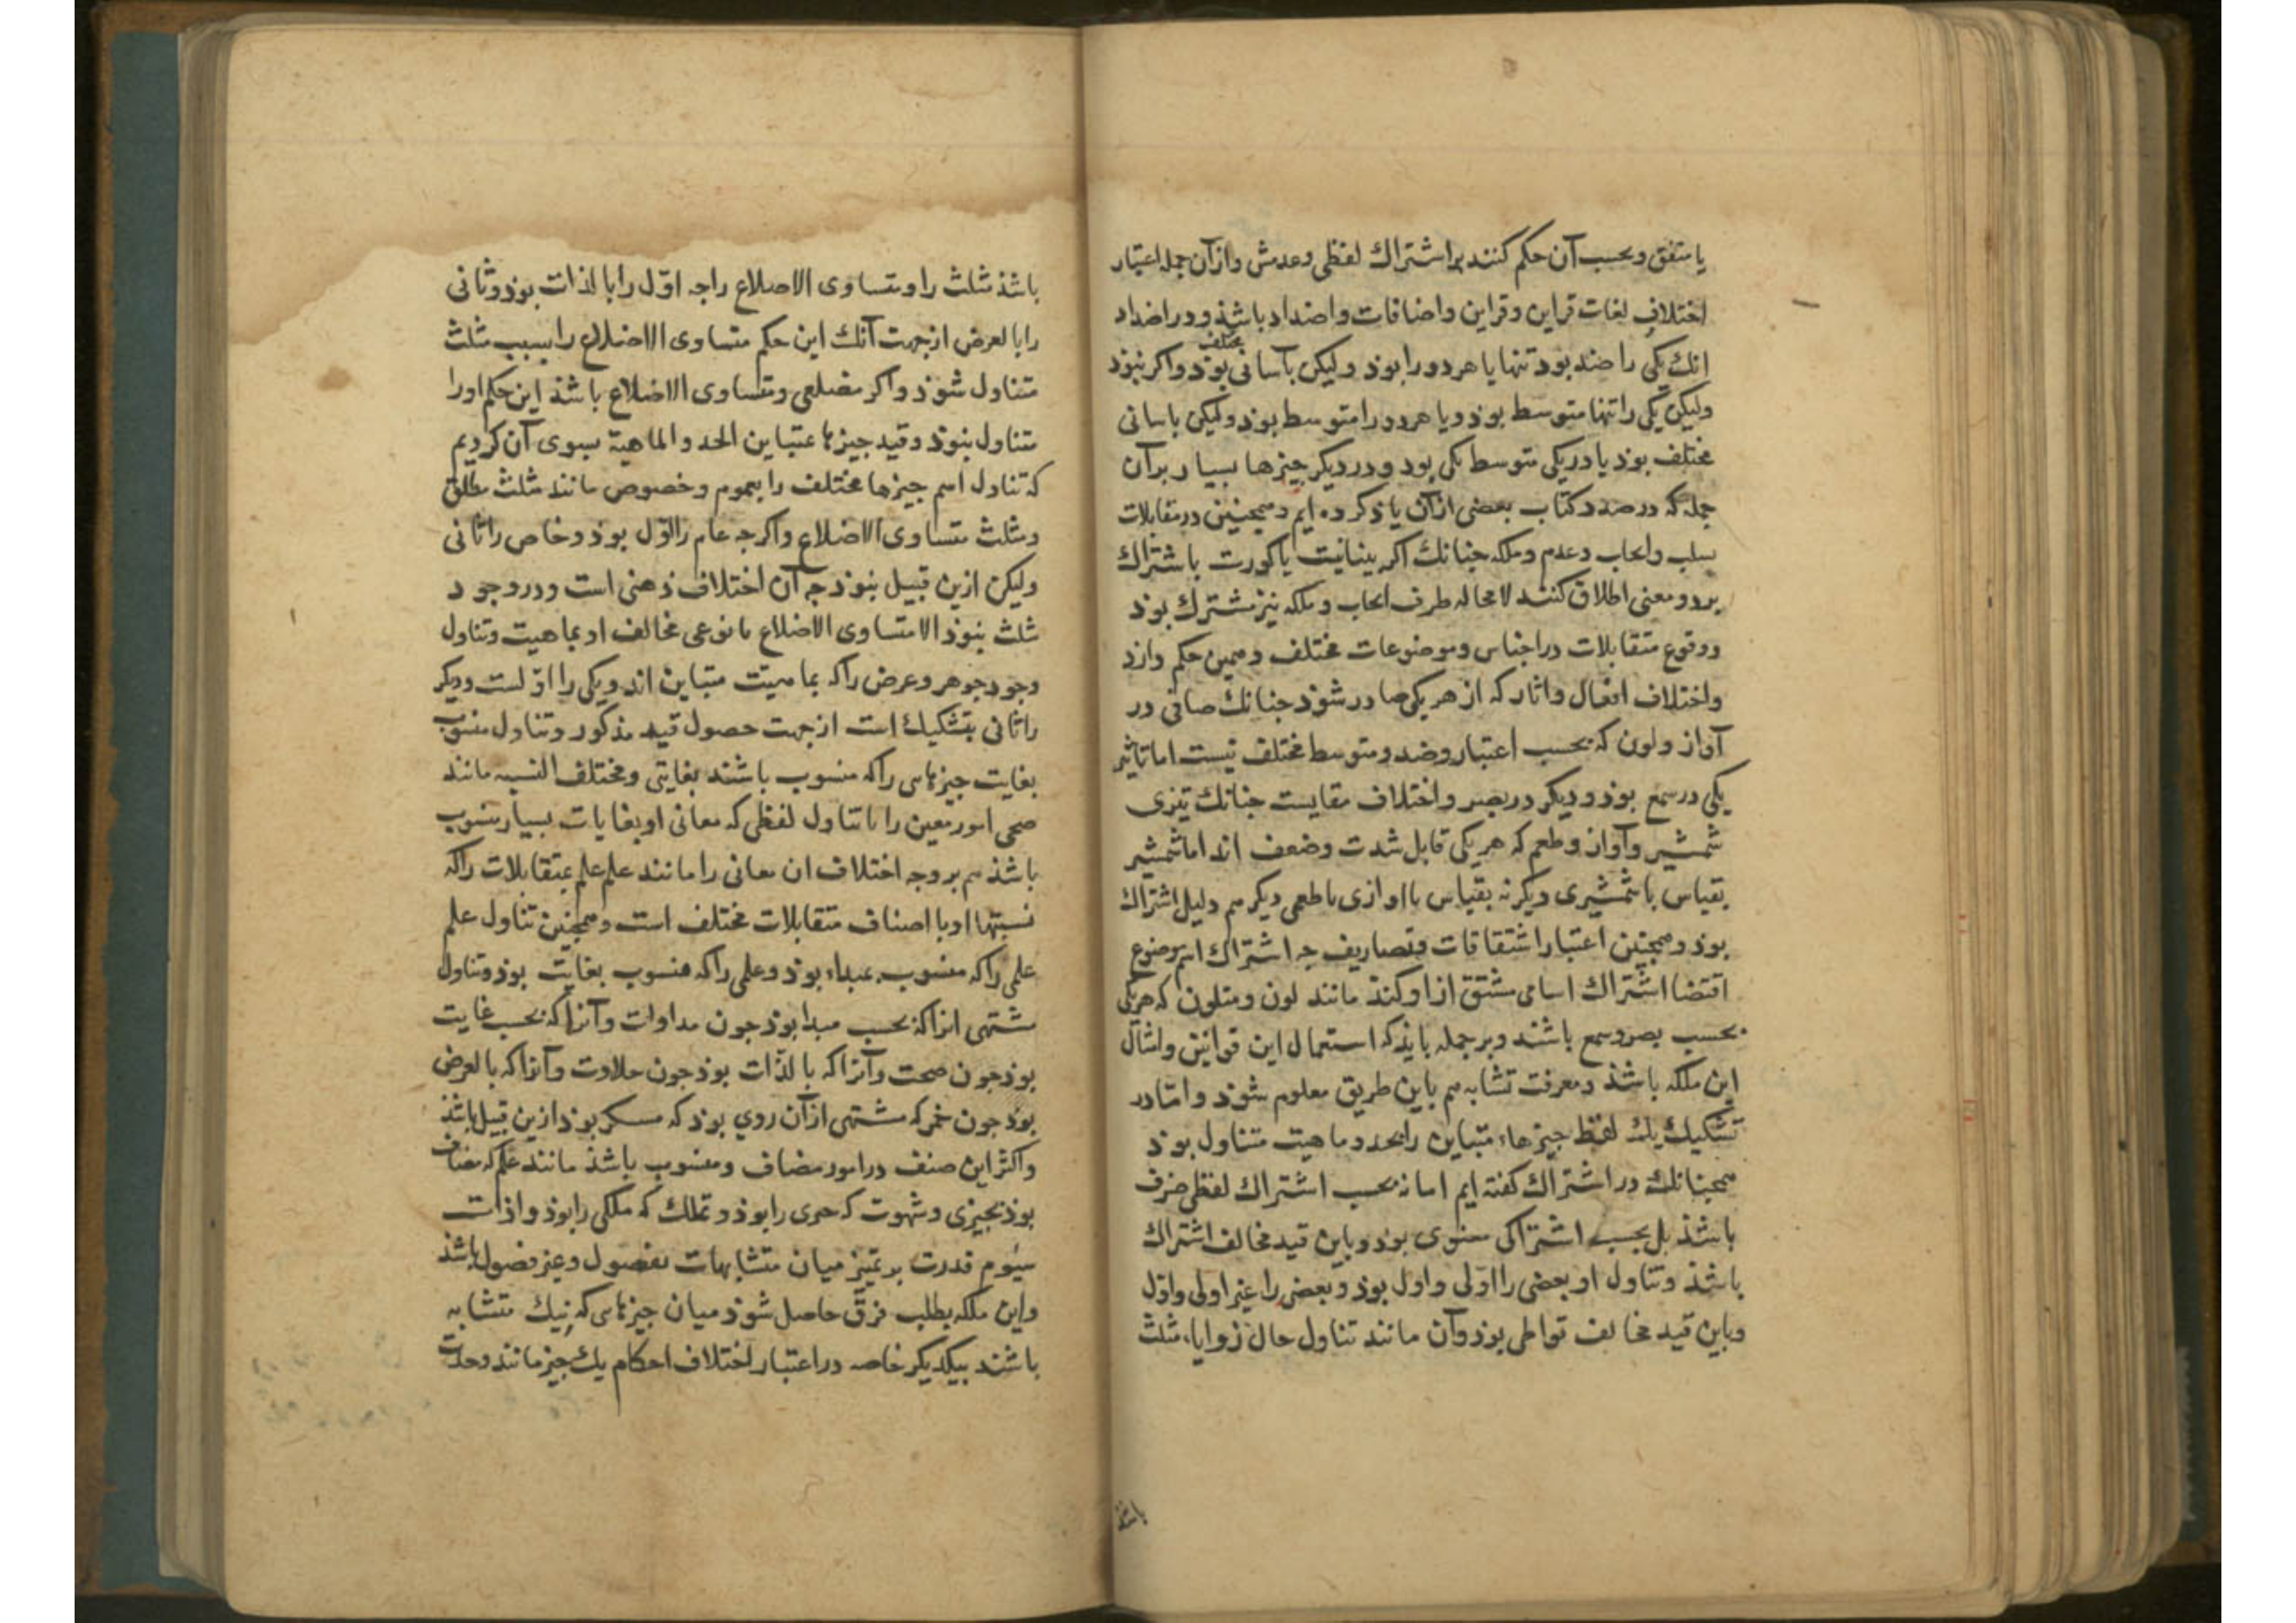 یا متفق و بحسب آن حکم کنند بر اشتراك لفظی و عدمش و از آن جمله اعتبار
اختلاف لغات قراین و قراین و اضافات و اضداد باشذ و در اضداد
انك یکی را ضد بود تنها یا هر دو را بوذ و لیکن بآسانی مختلف بوذ و اکر نبوذ
ولیکن یکی را تنها متوسط بوذ و یا هر دو را متوسط بوذ و لیکن باسانی
مختلف بوذ یا در یکی متوسط یکی بود و در دیکر جیزها بسیار بر آن
جمله که در صدد کتاب بعضی از آن یاذ کرده ایم و همجنین در مقابلات
سلب و ایجاب و عدم و ملکه جنانك اکر بینائیت یا کوریت باشتراك
بر دو معنی اطلاق کنند لا محاله طرف ایجاب و ملکه نیز مشترك بوذ
و وقوع متقابلات در اجناس و موضوعات مختلف و همین حکم دارذ
و اختلاف افعال و اثار که از هر یکی صادر شوذ جنانك صافی در
آواز و لون که بحسب اعتبار و ضد و متوسط مختلف نیست اما تاثیر
یکی در سمع بوذ و دیکر در بصر و اختلاف مقایست جنانك تیزی
شمشیر و آواز و طعم که هر یکی قابل شدت و ضعف اند اما شمشیر
بقیاس با شمشیری دیکر نه بقیاس با اوازی یا طعمی دیکر هم دلیل اشتراك
بوذ و همجنین اعتبار اشتقاقات و تصاریف جه اشتراك اسم موضوع
اقتضا اشتراك اسامی مشتق از او کند مانند لون و متلون که هر یکی
بحسب بصر و سمع باشند و بر جمله بایذ که استعمال این قوانین و امثال
این ملکه باشذ و معرفت تشابه هم باین طریق معلوم شوذ و امّا در
تشکیك یك لفظ جیزهاء متباین را بحد و ماهیت متناول بوذ
همجنانك در اشتراك کفته ایم اما نه بحسب اشتراك لفظی صرف
باشذ بل بحسب اشتراکی معنوی بوذ و باین قید مخالف اشتراك
باشذ و تناول او بعضی را اولی و اول بوذ و بعضی را غیر اولی و اوّل
و باین قید مخالف تواطی بوذ و آن مانند تناول حال زوایاء مثلث
باشذ
باشذ مثلث را و متساوی الاضلاع را جه اوّل را بالذات بوذ و ثانی
را بالعرض از جهت آنك این حکم متساوی الاضلاع را بسبب مثلث
متناول شوذ و اکر مضلعی و متساوی الاضلاع باشذ این حکم او را
متناول نبوذ و قید جیزها متباین الحد و الماهیة بسوی آن کردیم
که تناول اسم جیزها مختلف را بعموم و خصوص مانند مثلث مطلق
و مثلث متساوی الاضلاع و اکرجه عام را اوّل بوذ و خاص را ثانی
ولیکن ازین قبیل نبوذ جه آن اختلاف ذهنی است و در وجود
مثلث نبوذ الا متساوی الاضلاع یا نوعی مخالف او بماهیت و تناول
وجود جوهر و عرض را که بماهیت متباین اند و یکی را اوّلست و دیکر
را ثانی بتشکیك است از جهت حصول قید مذکور و تناول منسوب
بغایت جیزهایی را که منسوب باشند بغایتی و مختلف النسبه مانند
صحی امور معین را یا تناول لفظی که معانی او بغایات بسیار منسوب
باشذ هم بر وجه اختلاف ان معانی را مانند علم علم بمتقابلات را که
نسبتها او با اصناف متقابلات مختلف است و همجنین تناول علم
علمی را که منسوب بمبداء بوذ و علمی را که منسوب بغایت بوذ و تناول
مشتهی انرا که بحسب مبدا بوذ جون مداوات و آنرا که بحسب غایت
بوذ جون صحت و آنرا که بالذّات بوذ جون حلاوت و آنرا که بالعرض
بوذ جون خمر که مشتهی از آن روی بوذ که مسکر بوذ ازین قبیل باشذ
و اکثر این صنف در امور مضاف و منسوب باشذ مانند علم که مضاف
بوذ بجیزی و شهوت که حری را بوذ و تملك که ملکی را بوذ و اذات
سیوم قدرت بر تمییز میان متشابهات بفصول و غیر فصول باشذ
و این ملکه بطلب فرق حاصل شوذ میان جیزهایی که نیك متشابه
باشند بیکدیکر خاصه در اعتبار اختلاف احکام یك جیز مانند وحدت